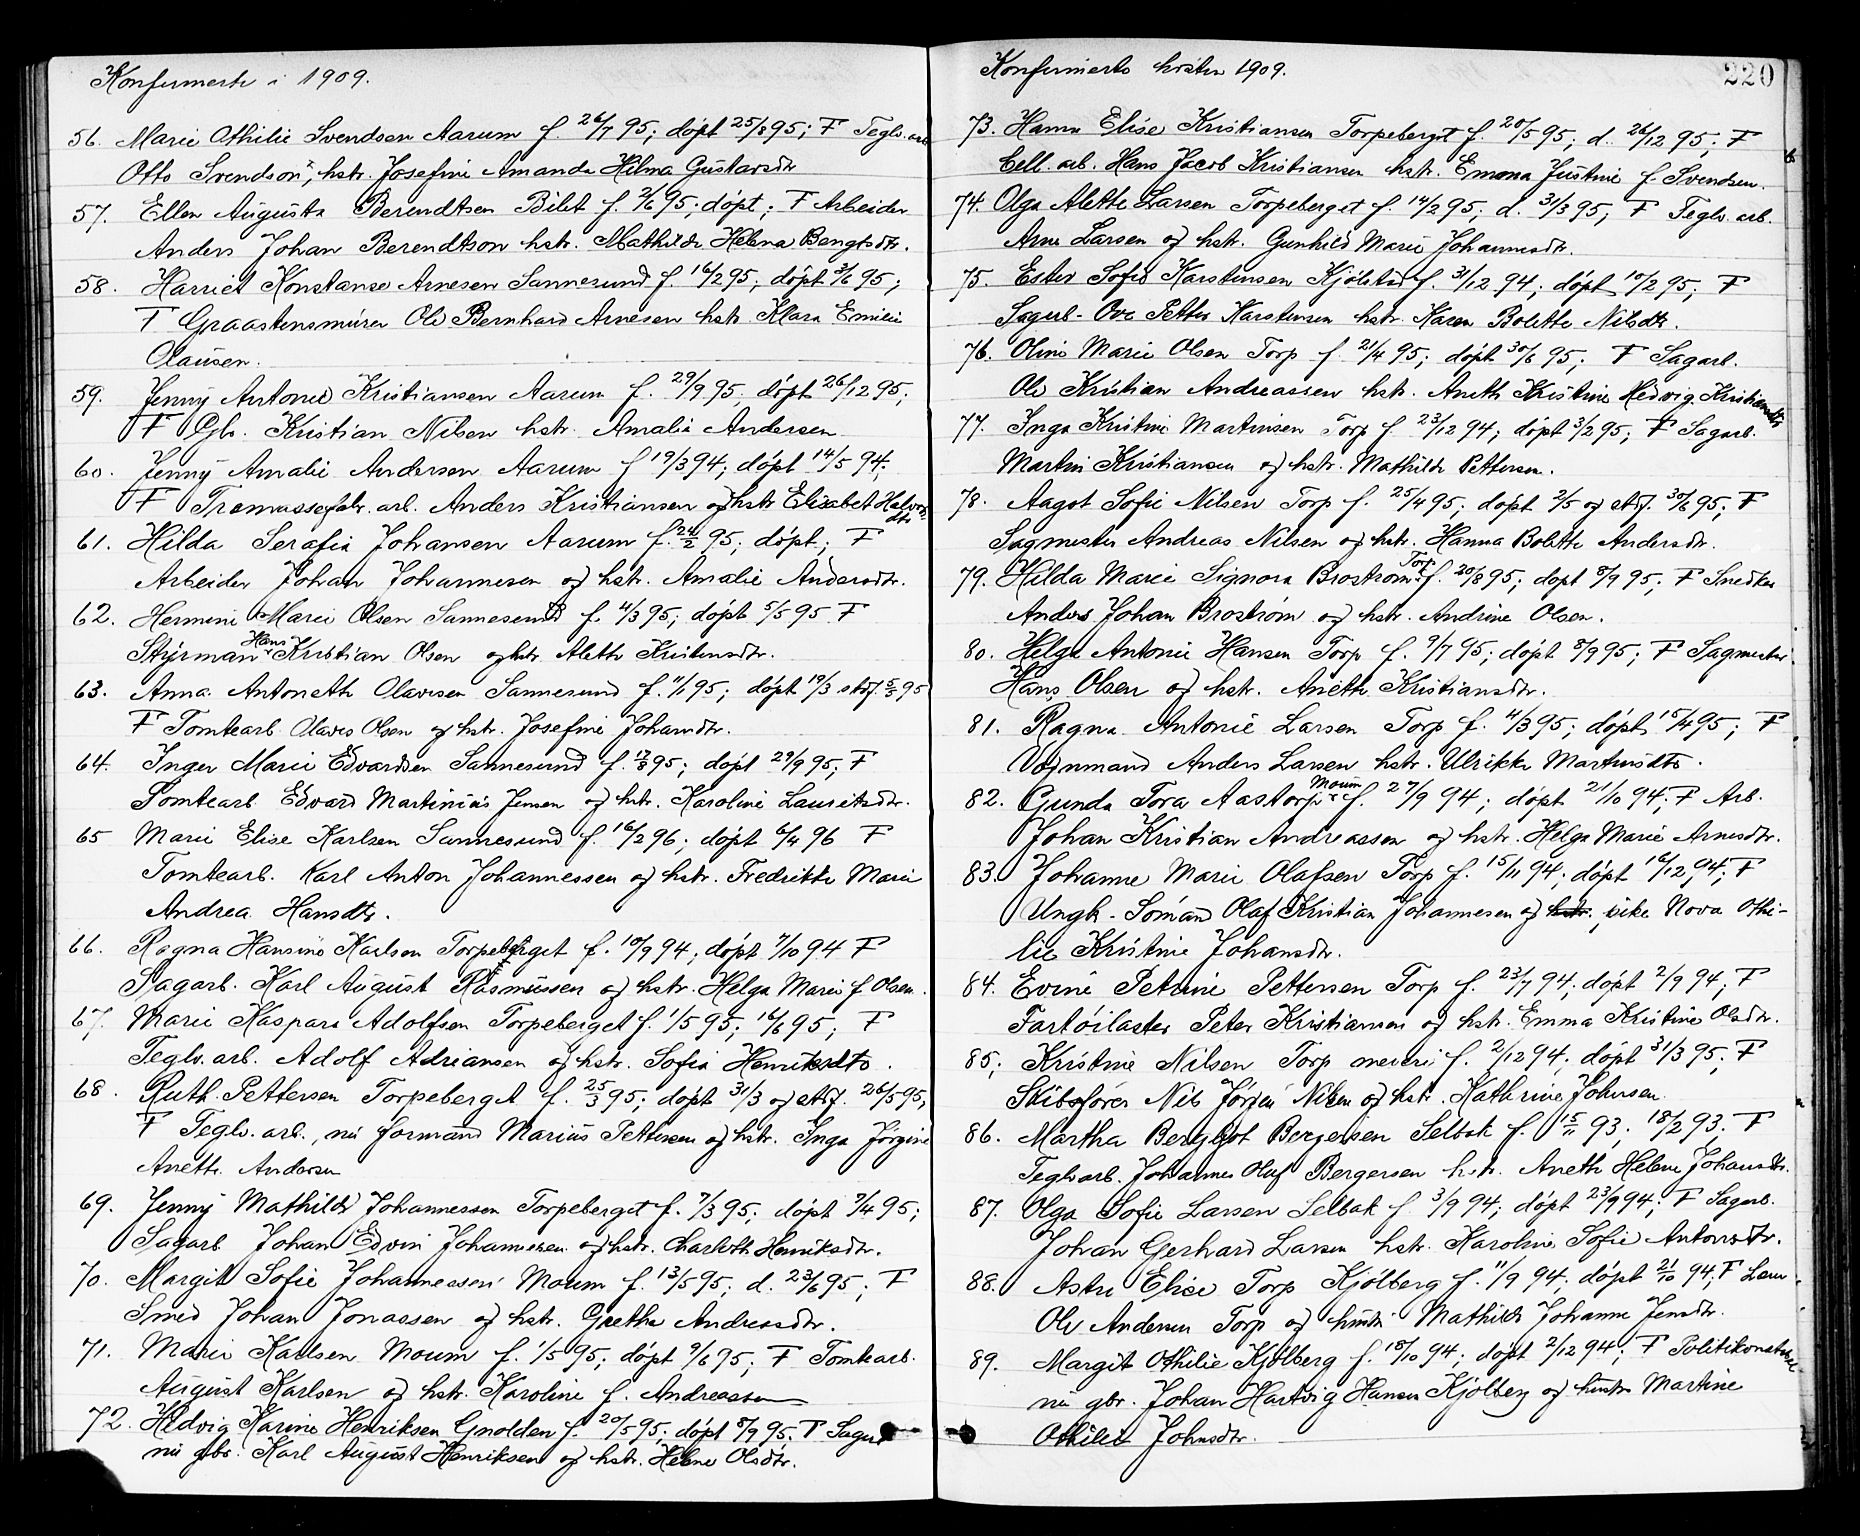 Konfirmerte i 1909.
56. Marie Othilie Svendsen Aarum f. 26/7 95; döpt 25/8 95; F Teglv. arb
Otto Svendson, hstr. Josefine Amanda Hilma Gustavsdtr
57. Ellen Augusta Berendtsen Bilet f. 2/6 95; döpt; F Arbeider
Anders Johan Berendtson hstr. Mathilde Helena Bengtsdtr.
58. Harriet Konstanse Arnesen Sannesund f. 16/2 95; döpt 3/6 95;
F Graastensmürer Ole Bernhard Arnesen hstr Klara Emilie
Olausen.
59. Jenny Antonie Kristiansen Aarum f. 29/9 95; döpt 26/12 95;
F Gbr. Kristian Nilsen hstr. Amalie Andersen
60. Jenny Amalie Andersen Aarum f 19/3 94; döpt 14/5 94;
F Tremassefabr. arb. Anders Kristiansen og hstr Elisabet Halvorsdtr
61. Hilda Serafia Johansen Aarum f. 24/2 95; döpt; F
Arbeider Johan Johannesen og hstr. Amalie Andersdtr.
62. Hermine Marie Olsen Sannesund f. 4/3 95; döpt 5/5 95 F
Styrman Hans Kristian Olsen og hstr Alette Kristensdtr.
63. Anna Antonette Olavesen Sannesund f. 11/1 95; döpt 19/3 stdf. 5/5 95
F Tomtearb. Olaves Olsen og hstr. Josefine Johansdtr.
64. Inger Marie Edvardsen Sannesund f. 17/8 95; döpt 29/9 95; F
Tomtearb. Edvard Martinius Jensen og hstr. Karoline Lauritsdtr.
65 Marie Elise Karlsen Sannesund f. 16/2 96; döpt 6/4 96 F
Tomtearb. Karl Anton Johannessen og hstr. Fredrikke Marie
Andrea Hansdtr.
66. Ragna Hansine Karlsen Torpeberget f. 10/9 94; döpt 7/10 94 F
Sagarb. Karl August Rasmussen og hstr. Helga Marie f. Olsen.
67. Marie Kaspara Adolfsen Torpeberget f. 1/5 95; 16/6 95; F
Teglv. arb. Adolf Adriansen og hstr. Sofia Henriksdtr.
68. Ruth Pettersen Torpeberget f. 25/3 95; döpt 31/3 og stdf. 26/5 95,
F Teglv. arb., nu formand Marius Pettersen og hstr. Inga Jörgine
Anette Andersen
69. Jenny Mathilde Johannessen Torpeberget f. 7/3 95; döpt 7/4 95;
Sagarb. Johan Edvin Johannesen og hstr. Charlotte Henriksdtr.
70. Margit Sofie Johannessen Moum f. 13/5 95; d. 23/6 95; F
Smed Johan Jonassen og hstr. Grethe Andreasdtr.
71. Marie Karlsen Moum f. 1/5 95; döpt 9/6 95; F Tomtearb.
August Karlsen og hstr. Karoline f. Andreassen
72. Hedvig Karine Henriksen Gnolden f. 20/5 95; döpt 8/9 95. F Sagar
nu gbr. Karl August Henriksen og hstr. Helene Olsdtr.
Konfirmerte hösten 1909.
220
73. Hanna Elise Kristiansen Torpeberget f. 20/5 95; d. 26/12 95; F
Cell. arb. Hans Jacob Kristiansen hstr. Emma Justine f. Svendsen.
74. Olga Alette Larsen Torpeberget f. 14/2 95; d. 31/3 95; F Teglv. arb.
Arne Larsen og hstr. Gunhild Marie Johannesdtr.
75. Ester Sofie Karstensen Kjölstad f. 31/12 94; döpt 10/2 95; F
Sagarb. Ove Petter Karstensen hstr. Karen Bolette Nilsdtr.
76. Oline Marie Olsen Torp f. 21/4 95; döpt 30/6 95; F Sagarb.
Ole Kristian Andreassen hstr. Anette Kristine Hedvig Kristiansdtr
77. Inga Kristine Martinsen Torp f 23/12 94; döpt 3/2 95; F Sagarb.
Martin Kristiansen og hstr. Mathilde Pettersen.
78. Aagot Sofie Nilsen Torp f. 25/4 95; döpt 2/5 og stdf. 30/6 95; F
Sagmester Andreas Nilsen og hstr. Hanna Bolette Andersdtr.
79. Hilda Marie Signora Broström Torp f. 20/8 95; dopt 8/9 95; F Snedker
Anders Johan Broström og hstr. Andrine Olsen.
80. Helga Antonie Hansen Torp f. 9/7 95; döpt 8/9 95; F Sagmester
Hans Olsen og hstr. Anette Kristiansdtr.
81. Ragna Antonie Larsen Torp f. 4/3 95; döpt 15/4 95; F
Vognmand Anders Larsen hstr. Ulrikke Martinsdtr.
82. Gunda Tora Aastorp Moum f. 27/9 94; döpt 21/10 94; F Arb.
Johan Kristian Andreassen og hstr. Helga Marie Arnesdtr.
83. Johanne Marie Olafsen Torp f. 15/11 94; döpt 16/12 94; F
Ungk. Sömand Olaf Kristian Johannesen og hstr. pike Nora Othi-
lie Kristine Johansdtr.
84. Evine Petrine Pettersen Torp f. 23/7 94; döpt 2/9 94; F
Fartöilaster Peter Kristiansen og hstr. Emma Kristine Olsdtr.
85; Kristine Nilsen Torp meieri f. 2/12 94; döpt 31/3 95; F
Skibsförer Nils Jörgen Nilsen og hstr. Kathrine Johnsen
86. Martha Bergljot Bergersen Selbak f. 15/11 93; 18/2 93; F
Teglv arb. Johannes Oluf Bergersen hstr. Anette Helene Johansdtr.
87. Olga Sofie Larsen Selbak f. 3/9 94; döpt 23/9 94; F Sagarb.
Johan Gerhard Larsen hstr. Karoline Sofie Antonsdtr.
88. Astri Elise Torp Kjölberg f. 11/9 94; döpt 21/10 94; F Læn-
Ole Andersen Torp og hustru Mathilde Johanne Jensdtr.
89. Margit Othilie Kjölberg f. 18/10 94; döpt 2/12 94; F Politikonstabel
nu gbr. Johan Hartvig Hansen Kjölberg og hustru Martine
Othilie Johnsdtr.